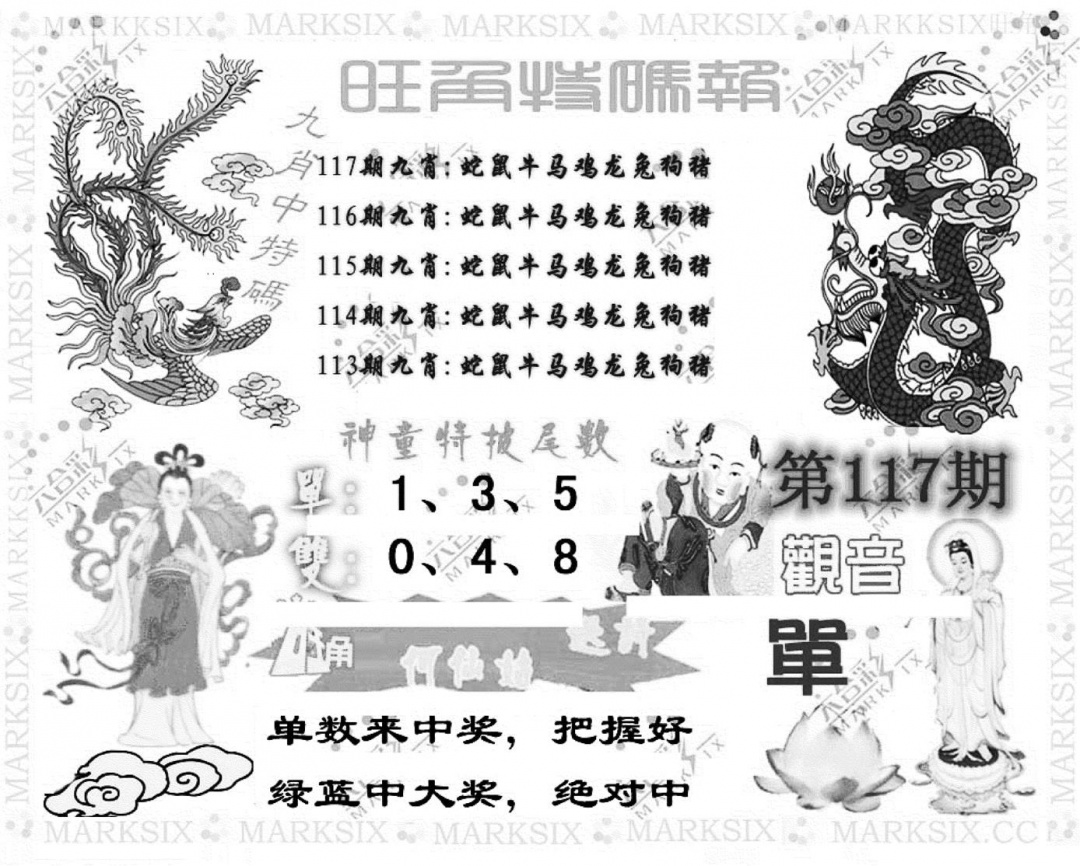 MARKKSIX MARKSIX MARKSIX MARKSIX MARKKSIX
旺角特碼報
九肖中特碼
117期九肖:蛇鼠牛马鸡龙兔狗猪
116期九肖:蛇鼠牛马鸡龙兔狗猪
115期九肖:蛇鼠牛马鸡龙兔狗猪
114期九肖:蛇鼠牛马鸡龙兔狗猪
113期九肖:蛇鼠牛马鸡龙兔狗猪
神童特披尾數
單: 1、3、5
雙: 0、4、8
第117期
觀音
單
何仙姑
单数来中奖，把握好
绿蓝中大奖，绝对中
MARKSIX MARKSIX MARKSIX MARKSIX MARKSIX.CC